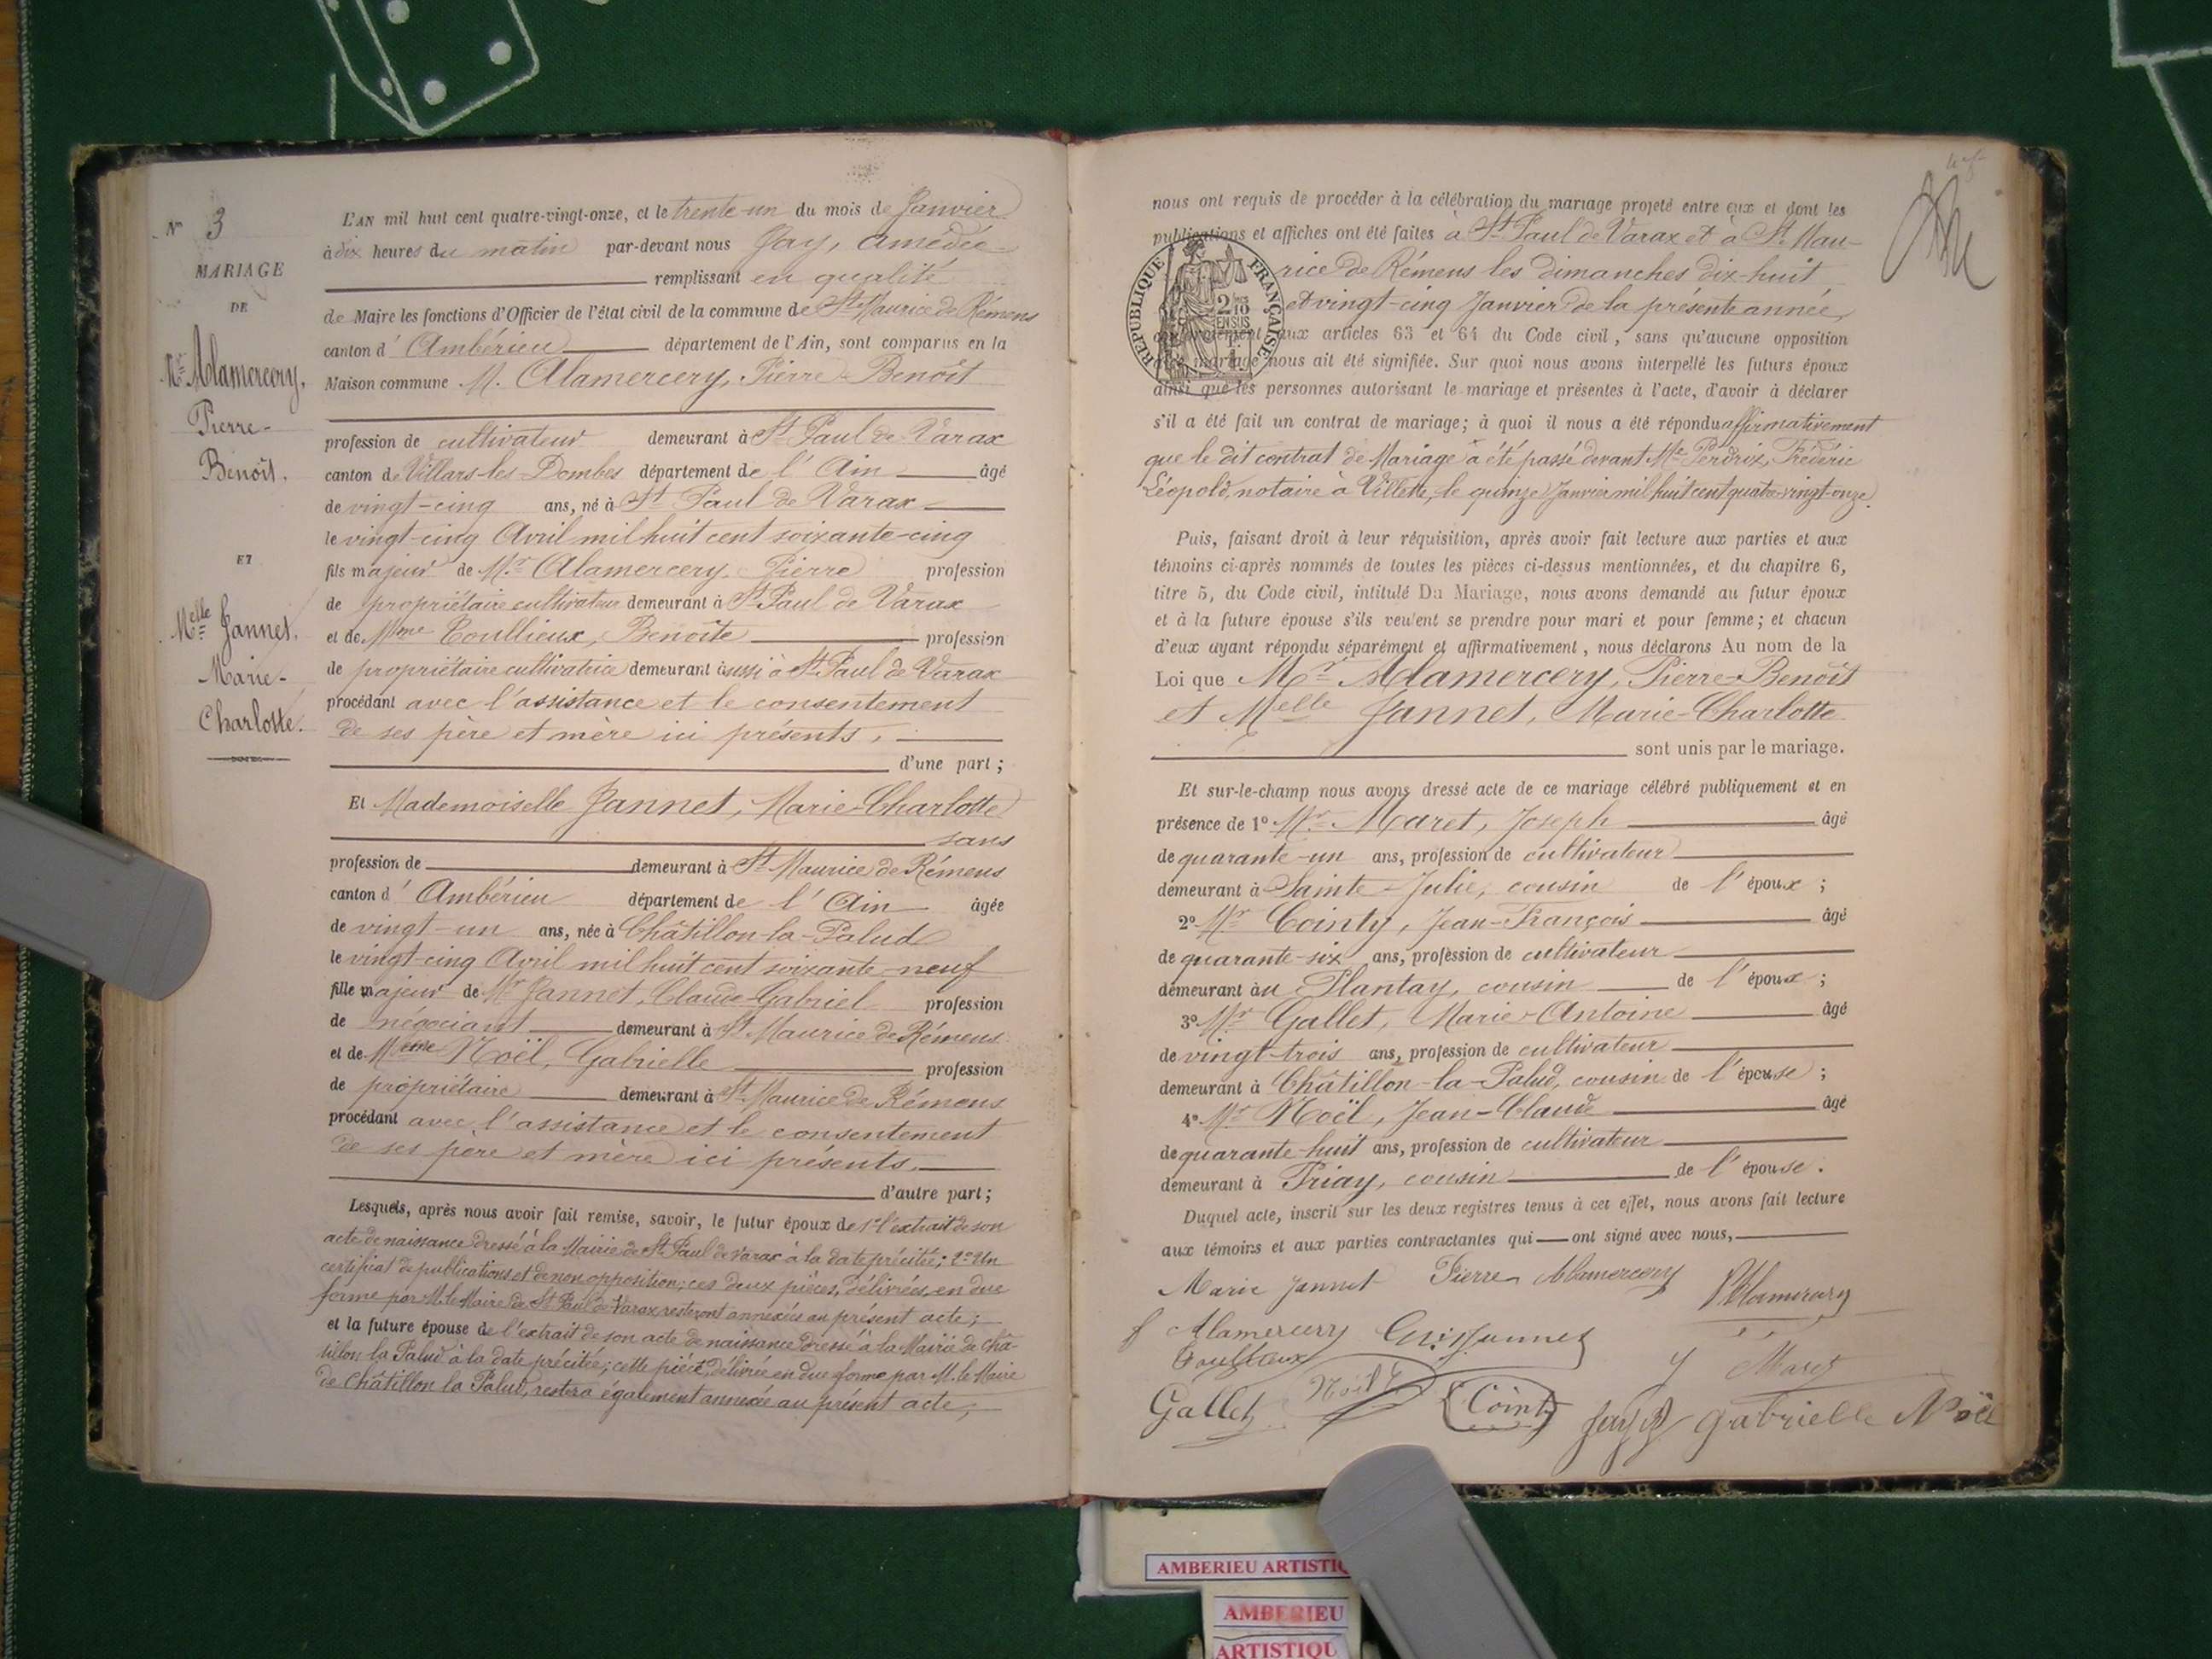 N° 3
MARIAGE
DE
Mr Alamercery,
Pierre-
Benoît.
ET
Melle Jannet,
Marie-
Charlotte.
L'AN mil huit cent quatre-vingt-onze, et le trente-un du mois de Janvier
à dix heures du matin par-devant nous Jay, Amédée
remplissant en qualité
de Maire les fonctions d'Officier de l'état civil de la commune de St Maurice de Rémens
canton d' Ambérieu département de l'Ain, sont comparus en la
Maison commune M. Alamercery, Pierre-Benoît
profession de cultivateur demeurant à St Paul de Varax
canton de Villars-les-Dombes département de l'Ain âgé
de vingt-cinq ans, né à St Paul de Varax
le vingt-cinq Avril mil huit cent soixante-cinq
fils majeur de Mr Alamercery, Pierre profession
de propriétaire cultivateur demeurant à St Paul de Varax
et de Mme Coullieux, Benoîte profession
de propriétaire cultivatrice demeurant aussi à St Paul de Varax
procédant avec l'assistance et le consentement
de ses père et mère ici présents,
d'une part;
Et Mademoiselle Jannet, Marie-Charlotte
sans
profession de demeurant à St Maurice de Rémens
canton d' Ambérieu département de l'Ain âgée
de vingt-un ans, née à Châtillon-la-Palud
le vingt-cinq Avril mil huit cent soixante-neuf
fille majeur de Mr Jannet, Claude-Gabriel profession
de négociant demeurant à St Maurice de Rémens
et de Meme Noël, Gabrielle profession
de propriétaire demeurant à St Maurice de Rémens
procédant avec l'assistance et le consentement
de ses père et mère ici présents.
d'autre part;
Lesquels, après nous avoir fait remise, savoir, le futur époux de 1° l'extrait de son
acte de naissance dressé à la Mairie de St Paul de Varax à la date précitée; 2° Un
certificat de publications et de non opposition; ces deux pièces, délivrées en due
forme par M. le Maire de St Paul de Varax resteront annexées au présent acte;
et la future épouse de l'extrait de son acte de naissance dressé à la Mairie de Châ-
tillon la Palud à la date précitée; cette pièce, délivrée en due forme par M. le Maire
de Châtillon la Palud, restera également annexée au présent acte;
nous ont requis de procéder à la célébration du mariage projeté entre eux et dont les
publications et affiches ont été faites à St Paul de Varax et à St Mau-
rice de Rémens les dimanches dix-huit
et vingt-cinq Janvier de la présente année,
conformément aux articles 63 et 64 du Code civil, sans qu'aucune opposition
mariage nous ait été signifiée. Sur quoi nous avons interpellé les futurs époux
ainsi que les personnes autorisant le mariage et présentes à l'acte, d'avoir à déclarer
s'il a été fait un contrat de mariage; à quoi il nous a été répondu affirmativement
que le dit contrat de Mariage a été passé devant Me Perdrix, Frédéric
Léopold, notaire à Villette, le quinze Janvier mil huit cent quatre-vingt-onze.
RÉPUBLIQUE FRANÇAISE
2/10
EN SUS
Puis, faisant droit à leur réquisition, après avoir fait lecture aux parties et aux
témoins ci-après nommés de toutes les pièces ci-dessus mentionnées, et du chapitre 6,
titre 5, du Code civil, intitulé Du Mariage, nous avons demandé au futur époux
et à la future épouse s'ils veulent se prendre pour mari et pour femme; et chacun
d'eux ayant répondu séparément et affirmativement, nous déclarons Au nom de la
Loi que Mr Alamercery, Pierre-Benoît
et Melle Jannet, Marie-Charlotte
sont unis par le mariage.
Et sur-le-champ nous avons dressé acte de ce mariage célébré publiquement et en
présence de 1° Mr Maret, Joseph âgé
de quarante-un ans, profession de cultivateur
demeurant à Sainte-Julie, cousin de l'époux;
2° Mr Cointy, Jean-François âgé
de quarante-six ans, profession de cultivateur
demeurant au Plantay, cousin de l'époux;
3° Mr Gallet, Marie-Antoine âgé
de vingt-trois ans, profession de cultivateur
demeurant à Châtillon-la-Palud, cousin de l'épouse;
4° Mr Noël, Jean-Claude âgé
de quarante-huit ans, profession de cultivateur
demeurant à Priay, cousin de l'épouse.
Duquel acte, inscrit sur les deux registres tenus à cet effet, nous avons fait lecture
aux témoins et aux parties contractantes qui ont signé avec nous,
Marie Jannet Pierre Alamercery
f Alamercery Jannet
Maret
Gallet Noël Cointy Jay gabrielle Noël
AMBERIEU ARTISTIQ
AMBERIEU
ARTISTIQU